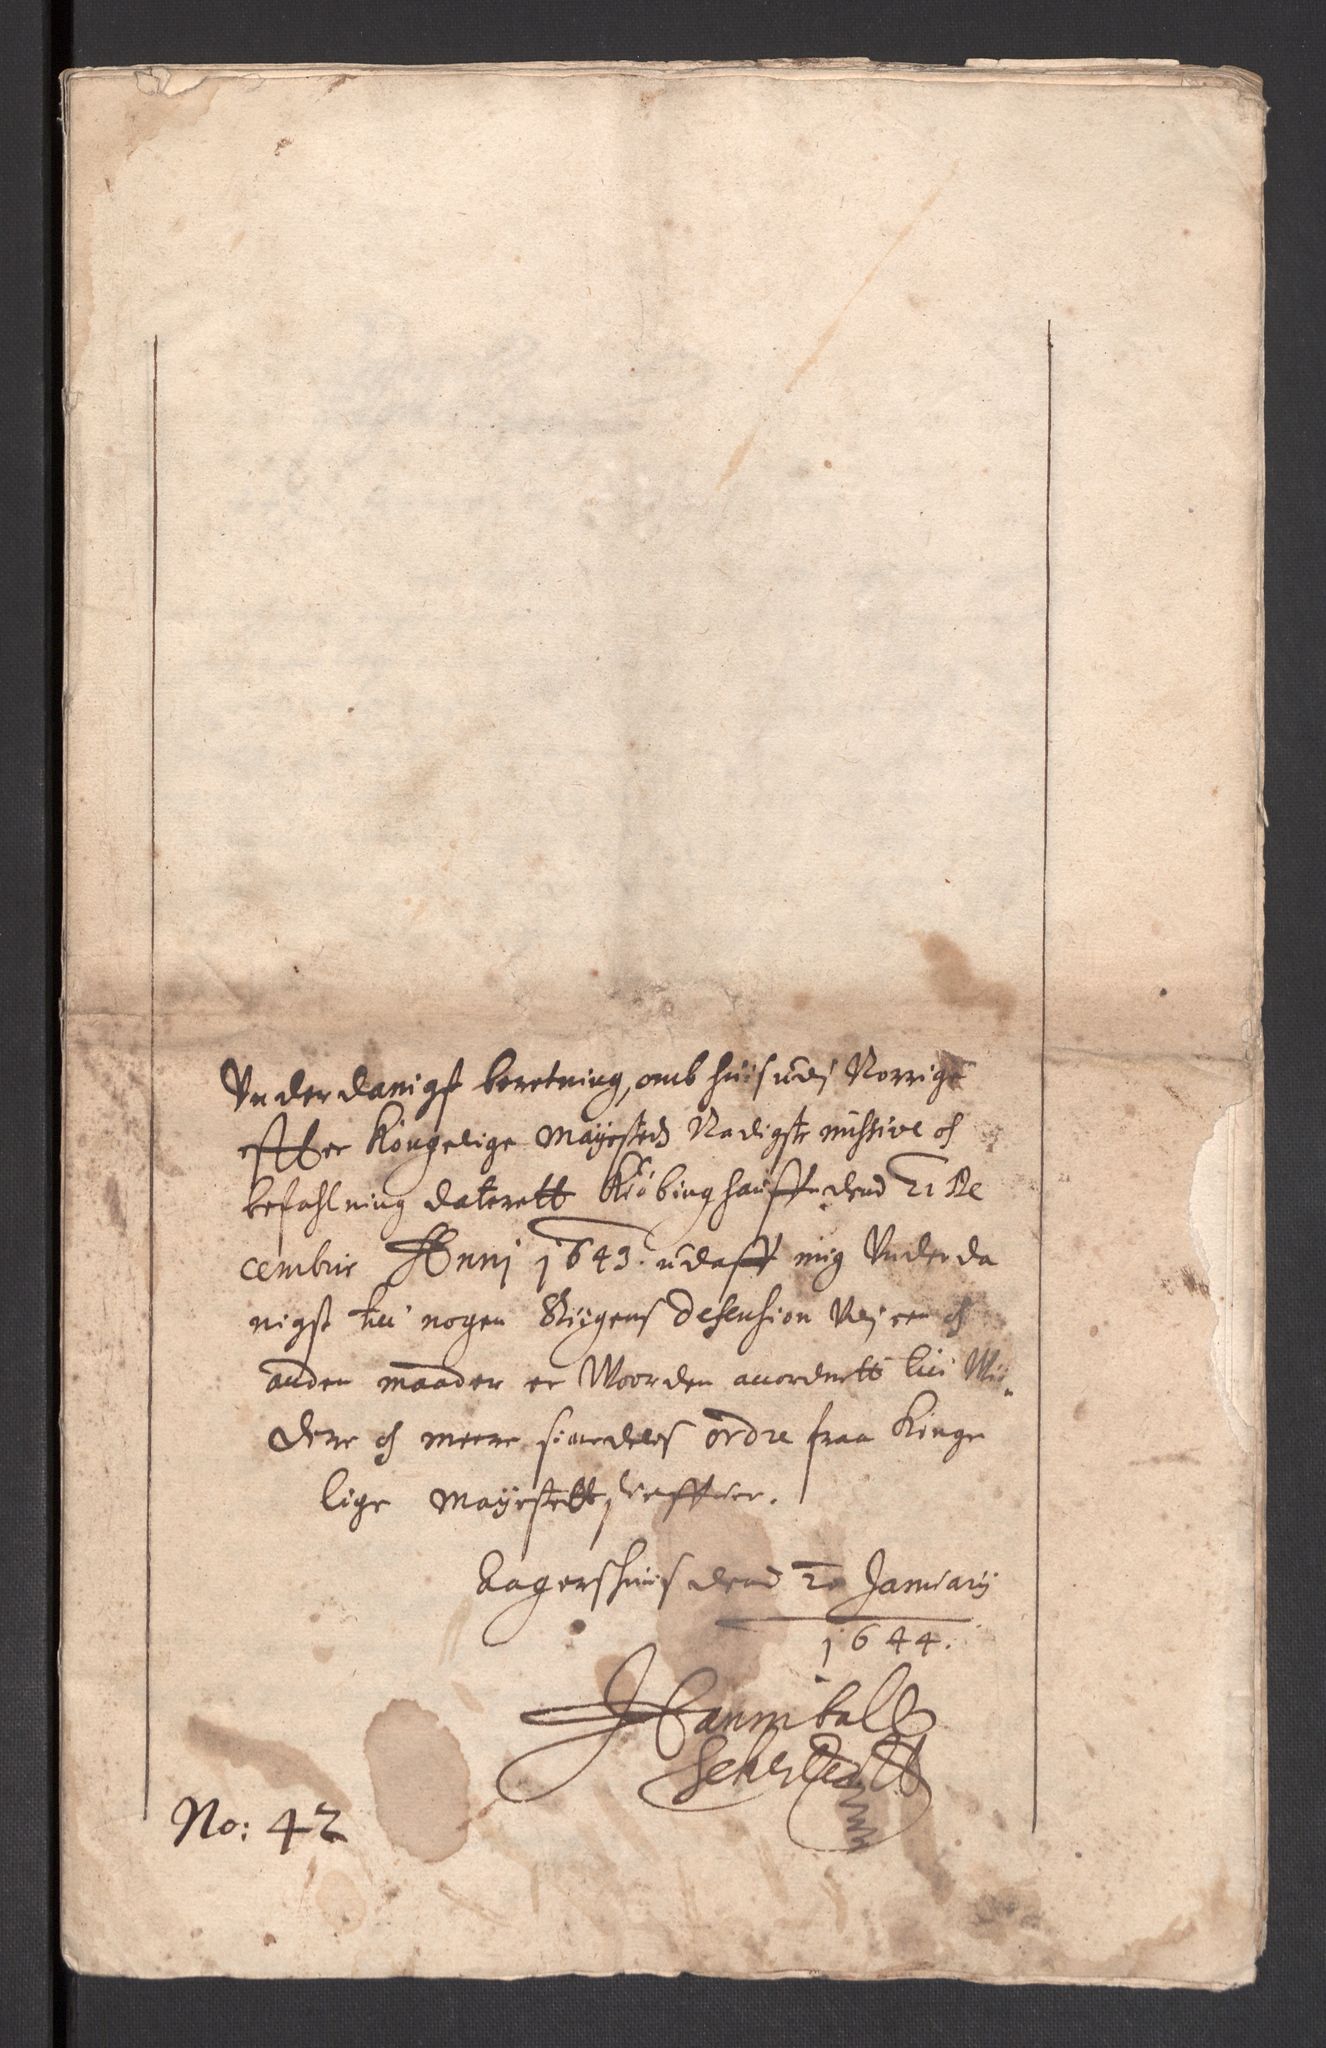 Vnderdanigst beretning, omb huis udj Norrige
effter Kongelige Mayesteds Nadigste missive oc
befahlning daterett Kiöbinghaffuen dend 21 De
cembris Anni 1643. udaff mig Vnderda
nigst till nogen Rigens Defension Vej een oc
anden maader er Woorden anordnett till Wii¬
dere oc meere ordre fraa Konge
lige Mayestett,
Aagershuus dend 20 January
1644.
Hannibal
Sehested
No: 42